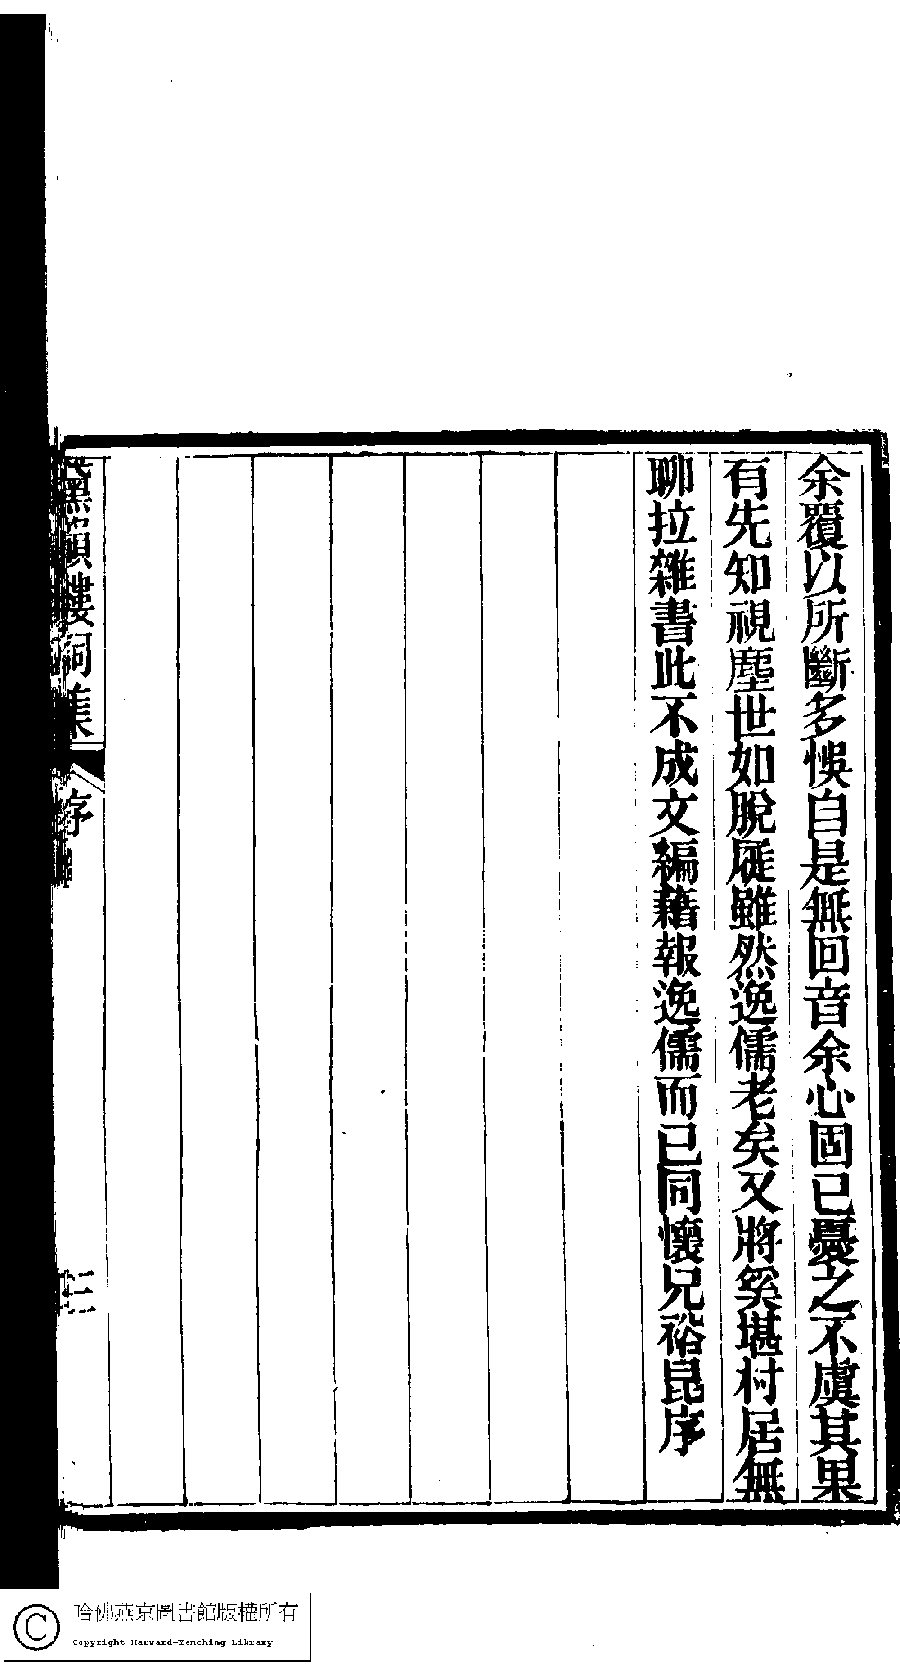 余覆以所斷多悞自是無回音余心固已憂之不虞其果
有先知視塵世如脫屣雖然逸儒老矣又將奚堪村居無
聊拉雜書此不成文編藉報逸儒而已同懷兄裕昆序
黛韻樓詞集
序
三
哈佛燕京圖書館版權所有
Copyright Harvard-Yenching Library